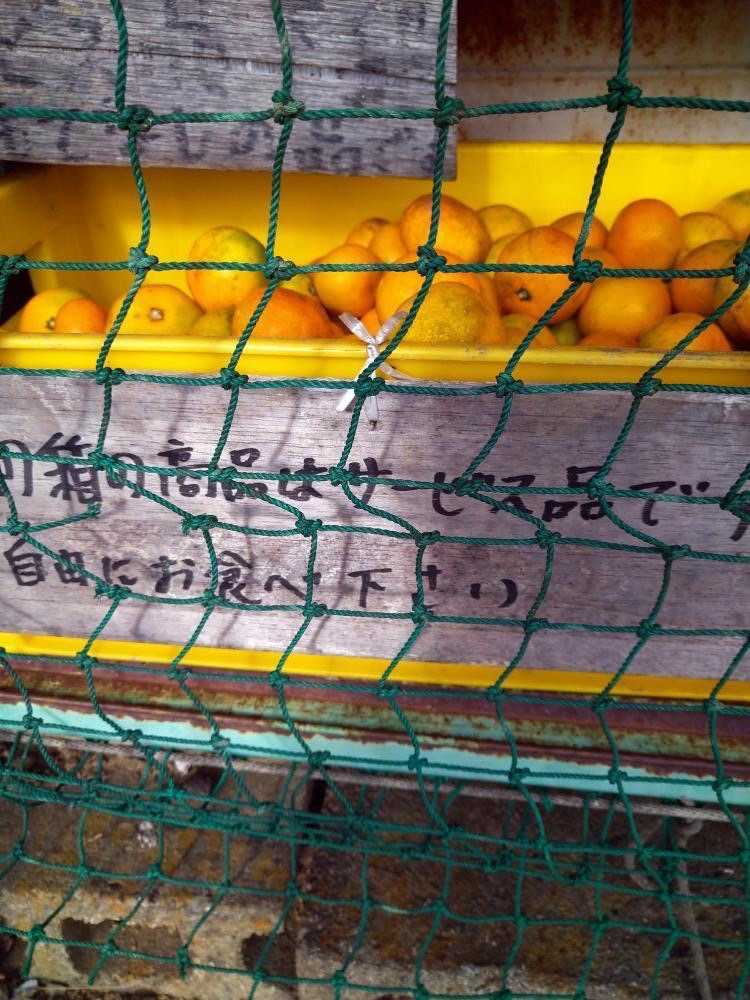 の箱の商品はサービス品です
自由にお食べ下さい